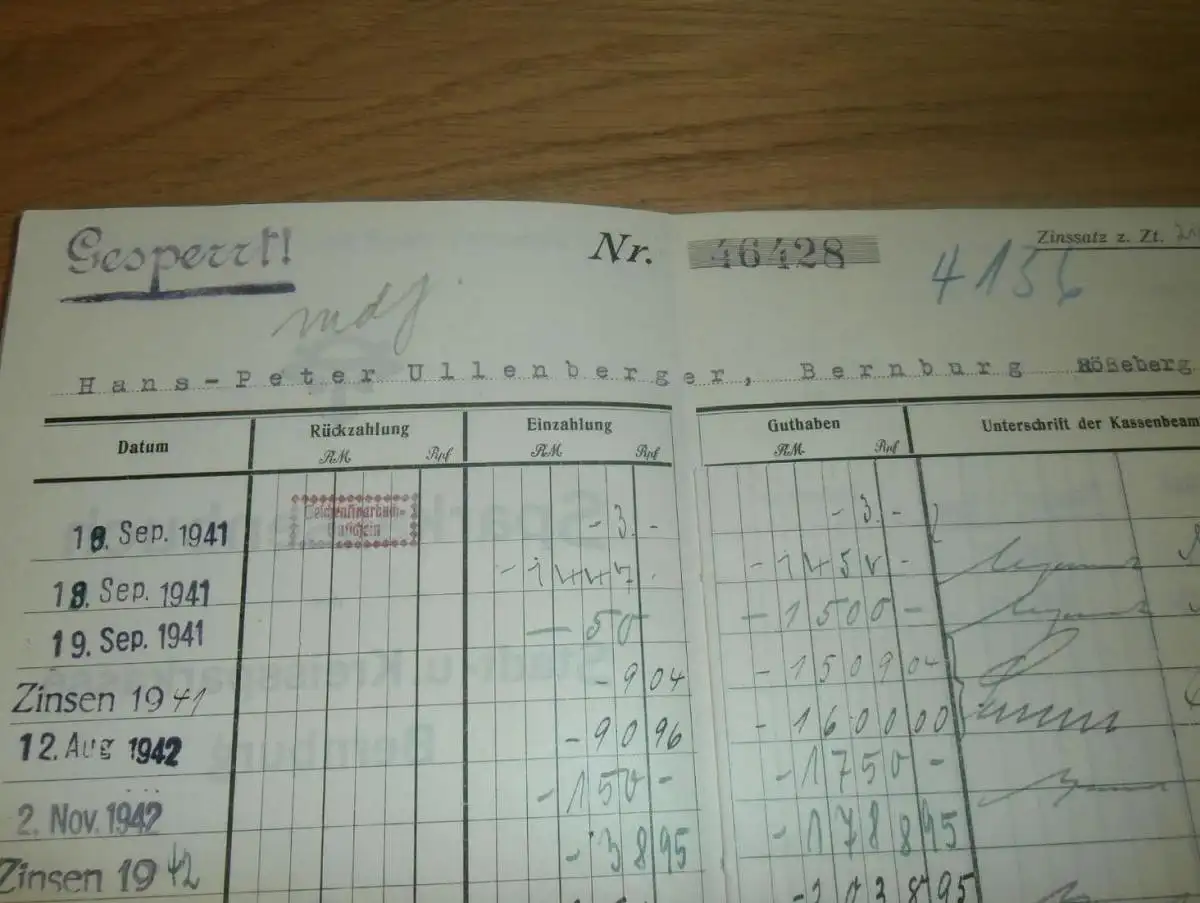 Gesperrt!
Nr. 46428
Zinssatz z. Zt.
mdj
Hans-Peter Ullenberger, Bernburg Rößeberg
Datum Rückzahlung Einzahlung Guthaben Unterschrift der Kassenbeam
RM Rpf RM Rpf RM Rpf
18. Sep. 1941 - 3. - - 3. -
18. Sep. 1941 - 1447. - 1450 -
19. Sep. 1941 — 50 - 1500 -
Zinsen 1941 - 9 04 - 1509 04
12. Aug 1942 - 90 96 - 1600 00
2. Nov. 1942 - 150 - - 1750 -
Zinsen 1942 - 38 95 - 1788 95